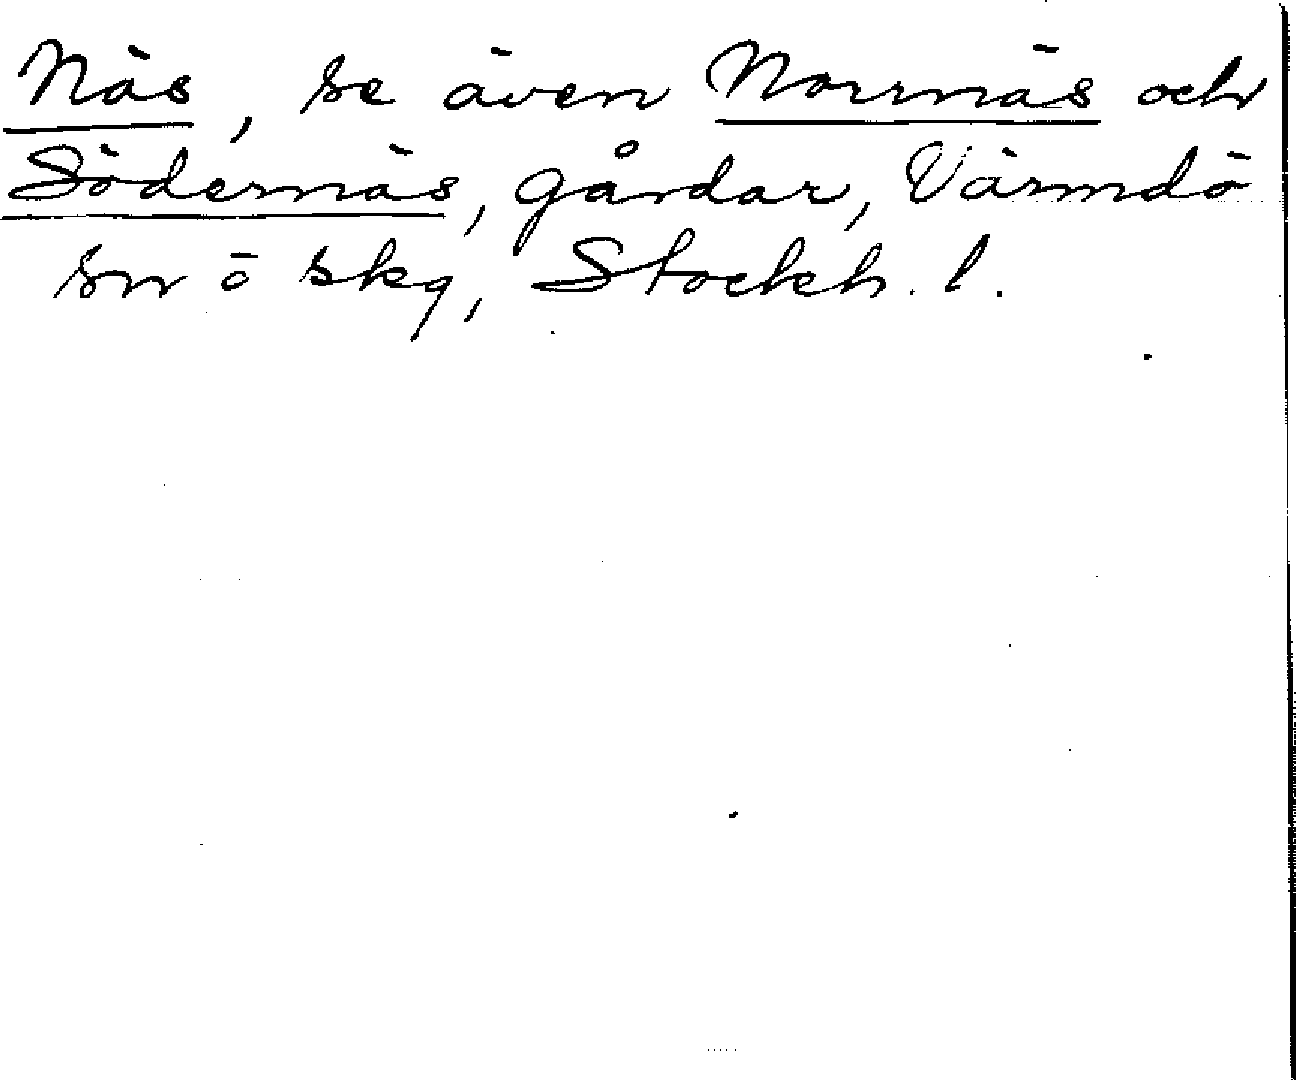 Näs, se även Norrnäs och
Södernäs, gårdar, Värmdö
sn o skg, Stockh. l.